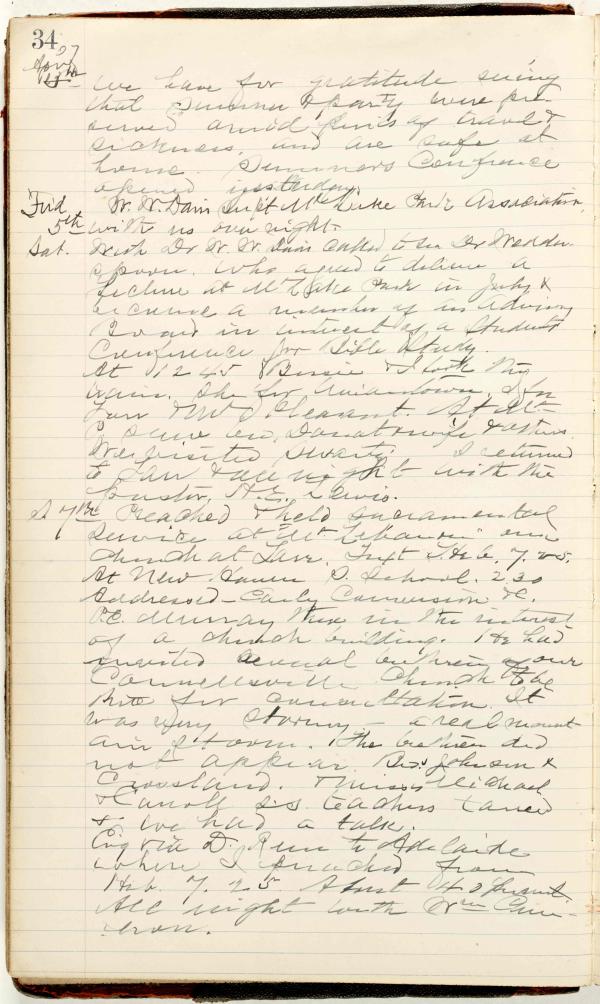 34
Apr 97
we have for gratitude seeing
that Summer & party were pre-
served amid perils of travel &
sickness, and are safe at
home. Seminars Conference
opened yesterday.
W. W. Davis Supt Mt Lake Park Association,
5th with us one night.
Sat. With Dr W. W. Davis called to see Dr Wedder-
spoon. Who agreed to deliver a
lecture at Mt Lake Park in July &
become a member of an Advisory
Board in interest of a Students
Conference for Bible Study.
At 12 45 Bessie & I took the
train. She for Uniontown, I for
Mt Pleasant. At Mt
wife & others
visited I returned
to & all night with the
Pastor, H. E. Lewis.
S 7th Preached & held sacramental
service at "Mt Lebanon" our
church at Text Heb. 7. 25.
At New Haven S. School. 2.30
Addressed - Early Conversion &c.
P.E. Murray there in the interest
of a church building. He had
invited several brethren of our
Connellsville Church to be
there for consultation. It
was very stormy - a real mount
ain storm. The brethren did
not appear. Bros. Johnson &
Crossland. & Miss Michael
& Carroll S.S. teachers
& we had a talk.
Evg via D. Run to Adelaide
where I preached from
Heb. 7. 25. About 40 present.
All night with Wm Cam-
eron.